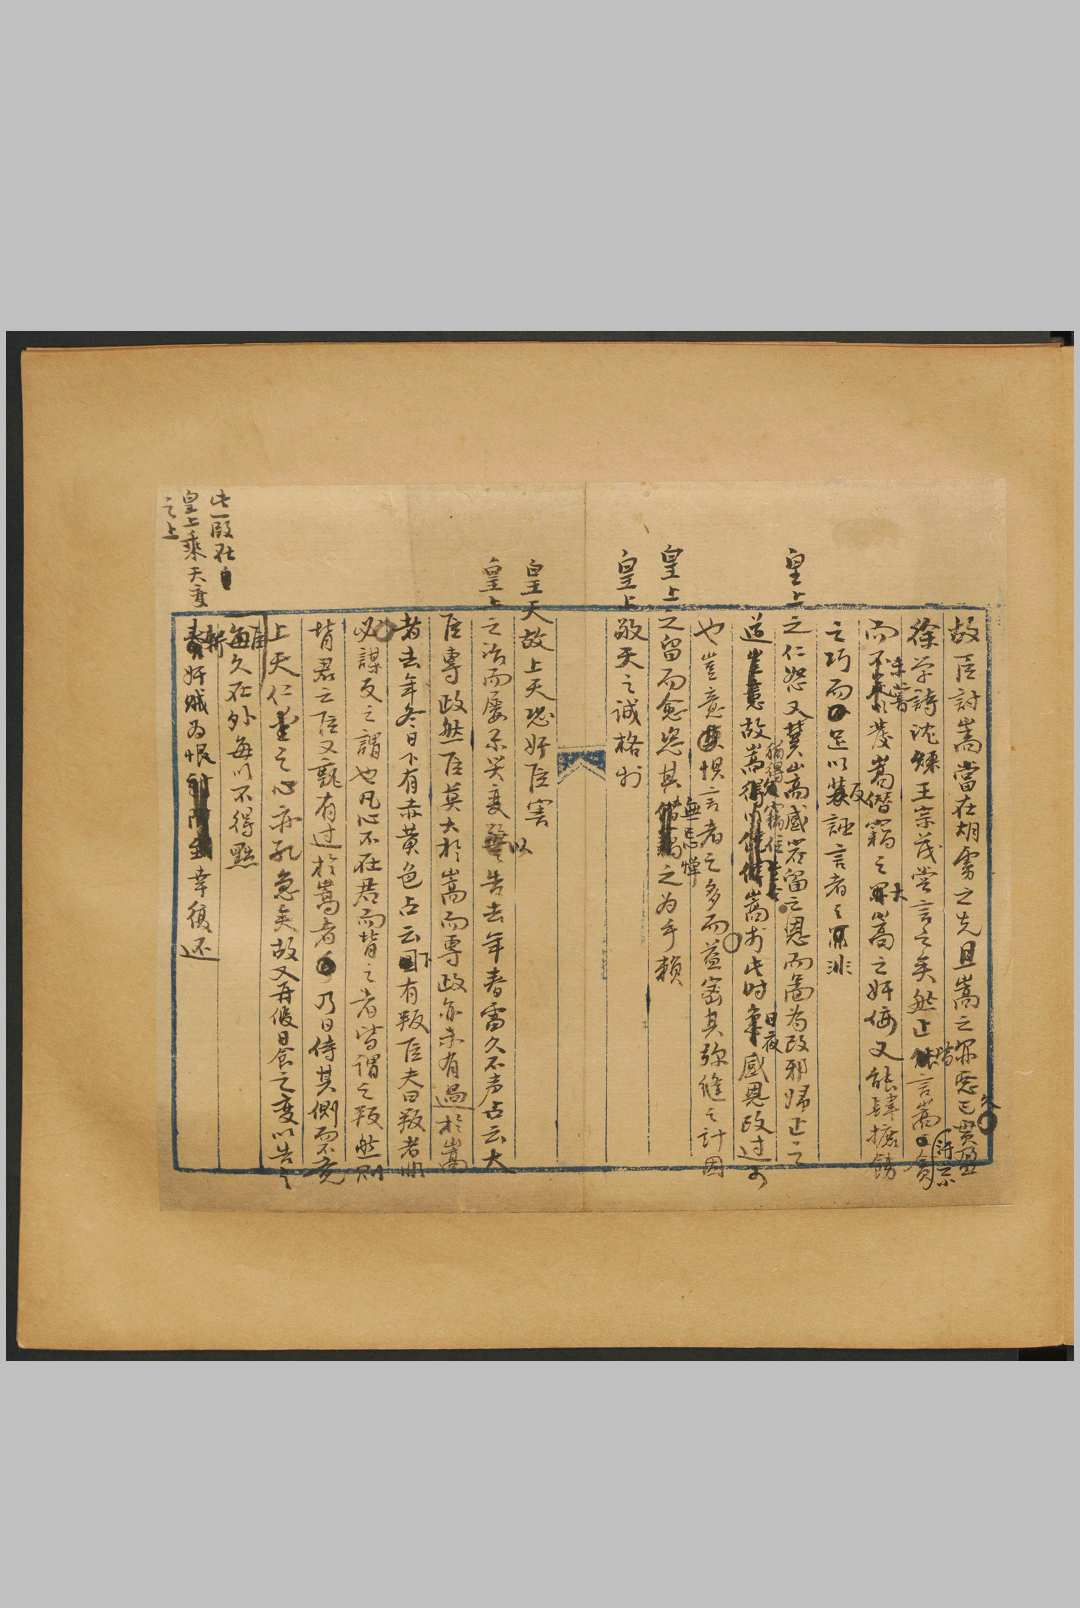 故臣討嵩當在胡虜之先且嵩之罪惡已貫盈
徐學詩沈煉王宗茂嘗言之矣然止言嵩貪
而不發嵩僭竊之大嵩之奸佞又能肆撼飾
之巧而足以反誣言者之非
皇上之仁恕又冀嵩感容留之恩而圖為改邪歸正之
道故嵩猶得竊位至今嵩於此時日夜感恩改過可
也豈意懼言者之多而益密其彌縫之計因
皇上之留而愈恣其無忌憚之為乎賴
皇上敬天之誠格於
皇天故上天恐奸臣害
皇上之治而屢示災變以告去年春雷久不声占云大
臣專政然臣莫大於嵩而專政亦未有過於嵩
者去年冬日下有赤黃色占云下有叛臣夫曰叛者非
必謀反之謂也凡心不在君而背之者皆謂之叛然則
背君之臣又孰有過於嵩者乎
上天仁愛之心亦孔急矣故又再假日食之變以告之
臣每久在外每以不得點
斬奸賊為恨幸復还
此一段在
皇上乘天變
之上